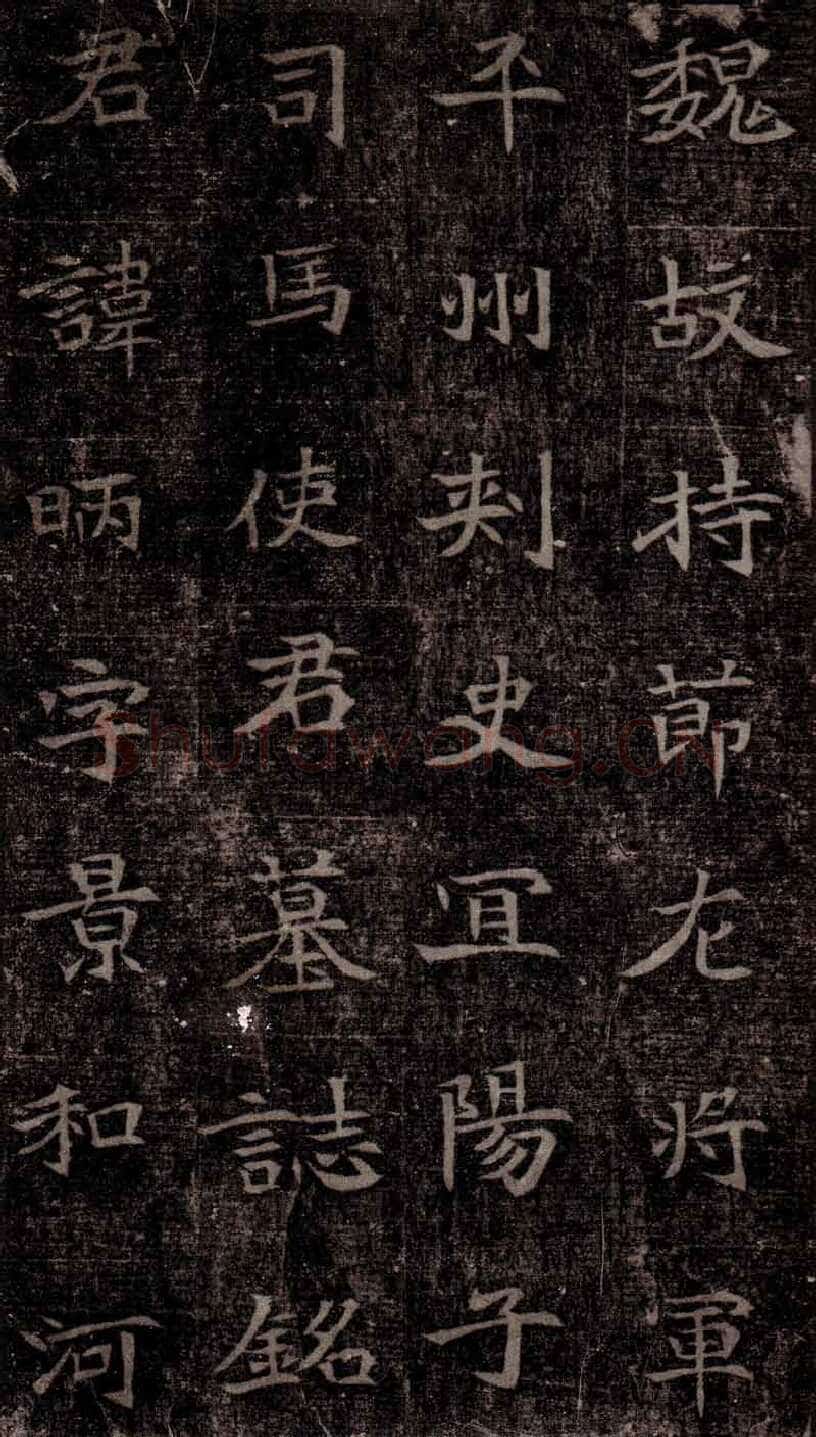 魏故持節左将軍
平州刺史冝陽子
司馬使君墓誌銘
君諱昞字景和河
Shufawang.CN